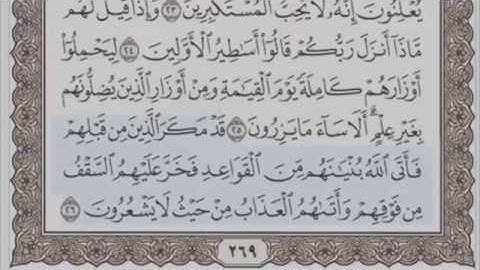 يُعْلِنُونَ إِنَّهُۥ لَا يُحِبُّ ٱلْمُسْتَكْبِرِينَ ٢٣ وَإِذَا قِيلَ لَهُم
مَّاذَآ أَنزَلَ رَبُّكُمْ قَالُوٓا۟ أَسَٰطِيرُ ٱلْأَوَّلِينَ ٢٤ لِيَحْمِلُوٓا۟
أَوْزَارَهُمْ كَامِلَةً يَوْمَ ٱلْقِيَٰمَةِ وَمِنْ أَوْزَارِ ٱلَّذِينَ يُضِلُّونَهُم
بِغَيْرِ عِلْمٍ ۗ أَلَا سَآءَ مَا يَزِرُونَ ٢٥ قَدْ مَكَرَ ٱلَّذِينَ مِن قَبْلِهِمْ
فَأَتَى ٱللَّهُ بُنْيَٰنَهُم مِّنَ ٱلْقَوَاعِدِ فَخَرَّ عَلَيْهِمُ ٱلسَّقْفُ
مِن فَوْقِهِمْ وَأَتَىٰهُمُ ٱلْعَذَابُ مِنْ حَيْثُ لَا يَشْعُرُونَ ٢٦
٢٦٩